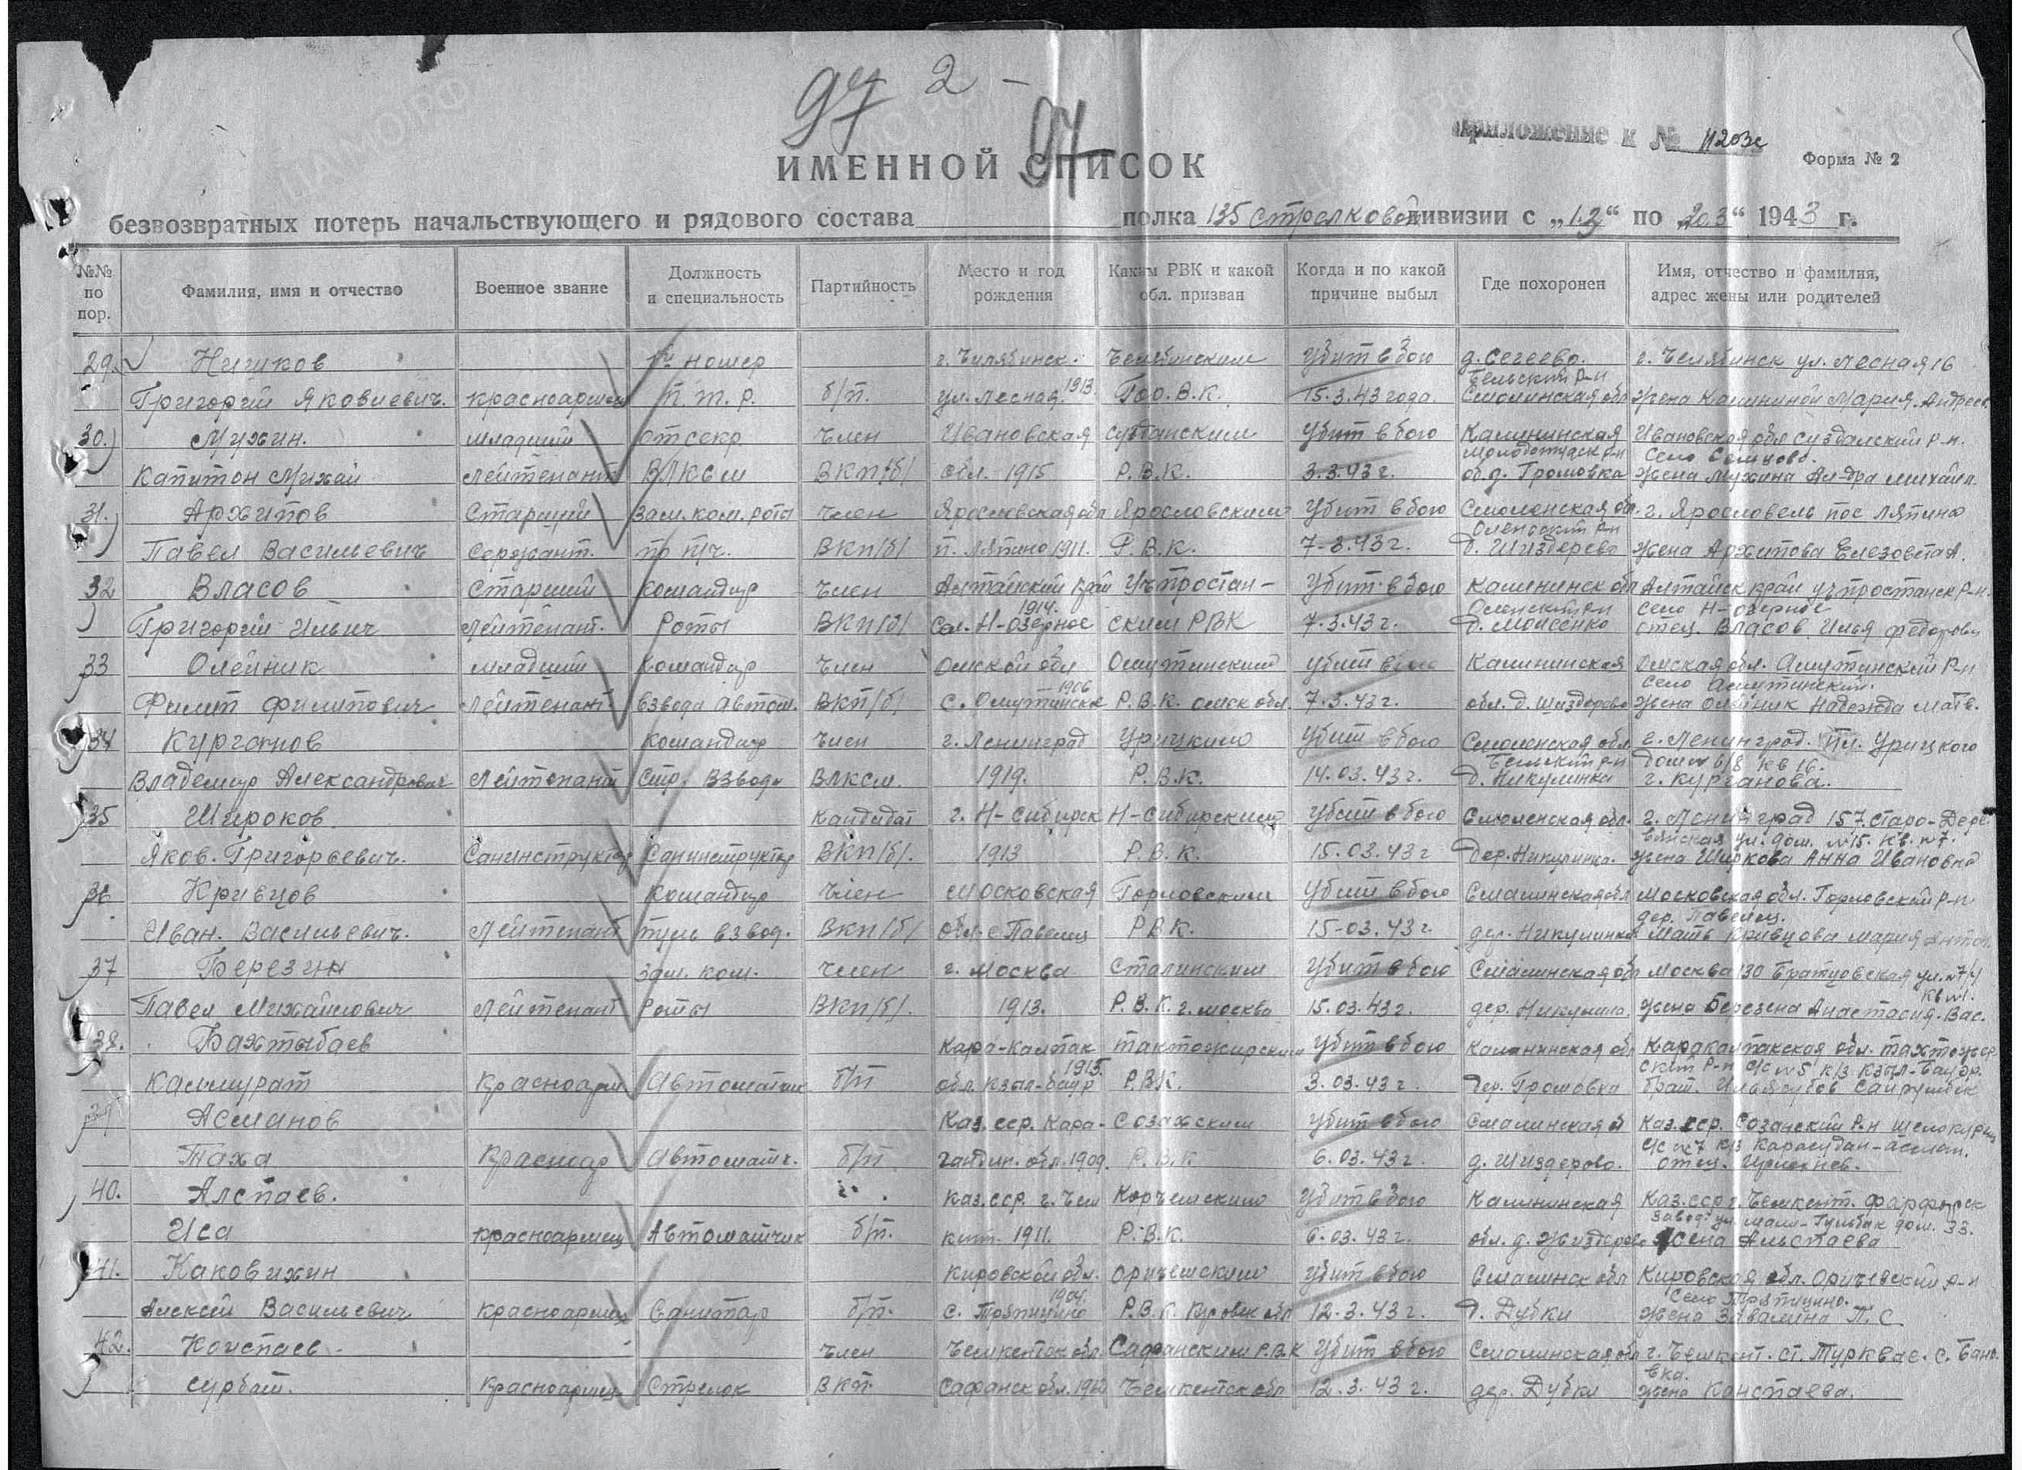 97 2 -
97
приложение к № 11203с
ИМЕННОЙ СПИСОК
Форма № 2
безвозвратных потерь начальствующего и рядового состава полка 135 стрелковой дивизии с „1.3“ по „20.3“ 1943 г.
№№ по пор.
Фамилия, имя и отчество
Военное звание
Должность и специальность
Партийность
Место и год рождения
Каким РВК и какой обл. призван
Когда и по какой причине выбыл
Где похоронен
Имя, отчество и фамилия, адрес жены или родителей
29. номер г. Челябинск. Челябинским Убит в бою д. Сегеево. г. Челябинск ул. Лесная 16
Бельский р-н
Григорий Яковлевич. красноармеец П.Т.Р. б/п. ул. Лесная. 1913. Гор.В.К. 15.3.43 года. Смолинская обл Жена Калининой Мария. Андреев.
30. Мухин. младший отсекр Член Ивановская суздальским Убит в бою Калининская Ивановская обл Суздалский р-н.
Капитон Михай лейтенант ВЛКСМ ВКП/б/ обл. 1915 Р.В.К. 3.3.43 г. об. д. Громовка Жена Мухина Ал-дра Михайл.
31. Архипов Старший Зам. ком. роты Член Ярославская обл Ярославским Убит в бою Смоленская обл. г. Ярославль пос Ляпино
Оленский р-н
Павел Васильевич Сержант. по пч. ВКП/б/ п. Ляпино 1911. Р.В.К. 7-3.43 г. д. Шиздерево Жена Архипова Елезовета А.
32 Власов Старший командир Член Алтайский край Учпростан- Убит в бою Калининск обл Алтайск край учпростанск р-н.
1914. Оленский р-н село Н-озерное
Григорий Ильич Лейтенант. Роты ВКП/б/ сел. Н-озерное ским РВК 7.3.43 г. д. Моисенко отец. Власов Илья Федорович
33 Олейник младший командир Член Омской обл Омутинский убит в бою Калининская Омская обл. Омутинский р-н
1906 село Омутинский.
Филип Филипович Лейтенант взвода автом. ВКП/б/ с. Омутинск Р.В.К. омск обл. 7.3.43 г. обл. д. Шиздерово Жена Олейник Надежда Матв.
34 Курганов командир Член г. Ленинград Урицким Убит в бою Смоленская обл г. Ленинград. Пл. Урицкого
Бельский р-н Дом № 6/8 кв 16.
Владемир Александрович Лейтенант Стр. взвода ВЛКСМ. 1919. Р.В.К. 14.03.43 г. д. Никулинка г. Курганова.
35 Широков Кандидат г. Н-Сибирск Н-Сибирским Убит в бою Смоленская обл. г. Ленинград 157. Старо-Дере-
венская ул. дом. № 15. кв. № 7.
Яков. Григорьевич. Санинструктор Санинструктор ВКП/б/. 1913 Р.В.К. 15.03.43 г Дер. Никулинка. Жена Широкова Анна Ивановна
36 Кривцов Командир Член Московская Горловским Убит в бою Смалинская обл Московская обл. Горловский р-н
дер. Павелец.
Иван. Васильевич. Лейтенант пуль взвод. ВКП/б/ обл. с Павелец РВК. 15-03.43 г. дер. Никулинка Мать Кривцова Мария Антон
37 Березин зам. ком. член г. Москва Сталинским Убит в бою Смалинская обл Москва 130 Братцовская ул. № 7/4
кв № 1.
Павел Михайлович Лейтенант Роты ВКП/б/. 1913. Р.В.К. г. Москва 15.03.43 г. дер. Никулина. Жена Березена Анастасия. Вас.
38. Бахтыбаев Кара-Калпак Убит в бою Калининская обл Каракалпакская обл.
1915.
Калмурат Красноарм Автоматчик б/п Р.В.К. 3.03.43 г. дер. Громовка Брат.
39 Асманов Каз. сср. Кара- Созакским Убит в бою Смалинская о Каз. сср. Созанский р-н
Таха Красноар Автоматч. б/п обл. 1909. Р.В.К 6.03.43 г. д. Шиздерово. отец.
40. Алспаев. Каз. сср. г. Чем Убит в бою Калининская Каз. сср г. Чемкент. фарфорск
завод. ул. дом. 33.
Иса красноармеец Автоматчик б/п. кент. 1911. Р.В.К. 6.03.43 г. обл. д. Жена Альспаева
41. Каковихин Кировской обл. Оричешским Убит в бою Смалинск обл Кировская обл. Оричевский р-н
1904. село Тряпицино.
Алексей Васильевич красноармеец Санитар б/п. с. Тряпицино Р.В.К. Кировск обл 12.3.43 г. д. Дубки Жена Завалина П. С.
42. Коиспаев Член Чемкентск обл. Сафанским Р.В.К Убит в бою Смалинская обл г. Чемкент. ст.
сурбат. Красноармеец Стрелок ВКП. Сафанск обл. Чемкентск обл 12.3.43 г. дер. Дубки Жена Конспаева.